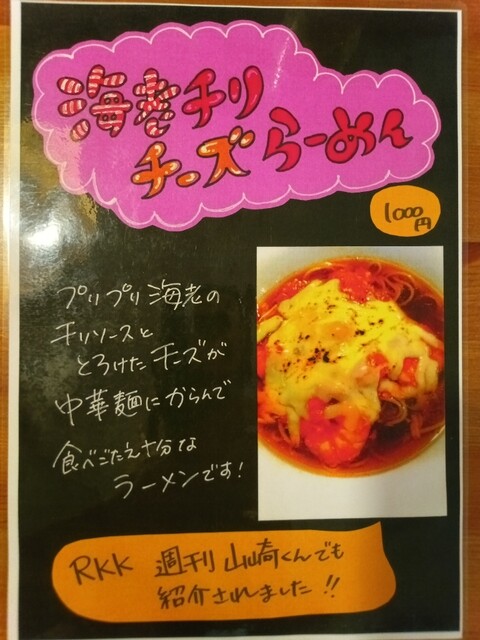 海老チリ
チーズらーめん
1000
円
プリプリ海老の
チリソースと
とろけたチーズが
中華麺にからんで
食べごたえ十分な
ラーメンです!
RKK 週刊山崎くんでも
紹介されました!!